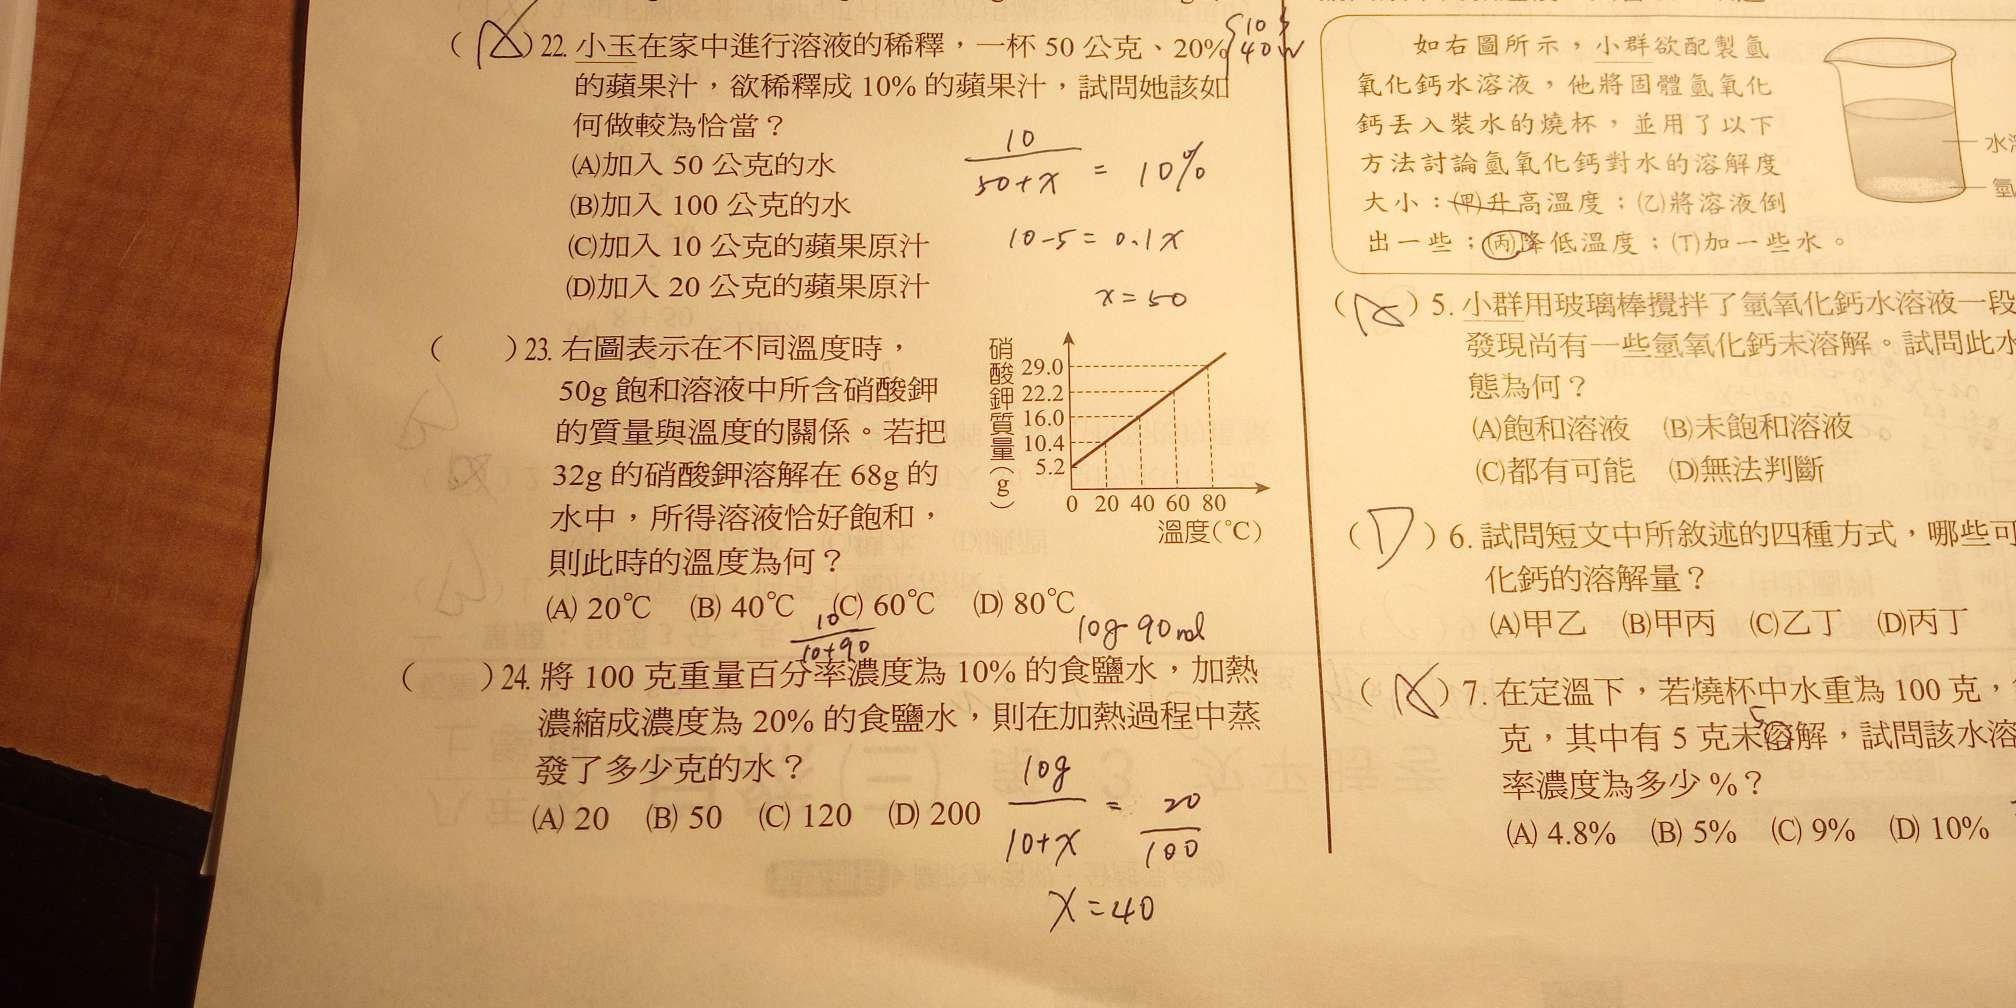 (A)22. 小玉在家中進行溶液的稀釋，一杯 50 公克、20%
10 s
40 w
的蘋果汁，欲稀釋成 10% 的蘋果汁，試問她該如
何做較為恰當？
(A)加入 50 公克的水
(B)加入 100 公克的水
(C)加入 10 公克的蘋果原汁
(D)加入 20 公克的蘋果原汁
10/(50+x) = 10%
10-5=0.1x
x=50
( )23. 右圖表示在不同溫度時，
50g 飽和溶液中所含硝酸鉀
的質量與溫度的關係。若把
32g 的硝酸鉀溶解在 68g 的
水中，所得溶液恰好飽和，
則此時的溫度為何？
(A) 20℃ (B) 40℃ (C) 60℃ (D) 80℃
硝酸鉀質量(g)
29.0
22.2
16.0
10.4
5.2
0 20 40 60 80
溫度(℃)
10/(10+90)
10g 90ml
( )24. 將 100 克重量百分率濃度為 10% 的食鹽水，加熱
濃縮成濃度為 20% 的食鹽水，則在加熱過程中蒸
發了多少克的水？
(A) 20 (B) 50 (C) 120 (D) 200
10g/(10+x) = 20/100
x=40
如右圖所示，小群欲配製氫
氧化鈣水溶液，他將固體氫氧化
鈣丟入裝水的燒杯，並用了以下
方法討論氫氧化鈣對水的溶解度
大小：(甲)升高溫度；(乙)將溶液倒
出一些；(丙)降低溫度；(丁)加一些水。
水
氫
(A)5. 小群用玻璃棒攪拌了氫氧化鈣水溶液一段
發現尚有一些氫氧化鈣未溶解。試問此水
態為何？
(A)飽和溶液 (B)未飽和溶液
(C)都有可能 (D)無法判斷
(D)6. 試問短文中所敘述的四種方式，哪些可
化鈣的溶解量？
(A)甲乙 (B)甲丙 (C)乙丁 (D)丙丁
(A)7. 在定溫下，若燒杯中水重為 100 克，
克，其中有 5 克未溶解，試問該水溶
率濃度為多少 %？
(A) 4.8% (B) 5% (C) 9% (D) 10%